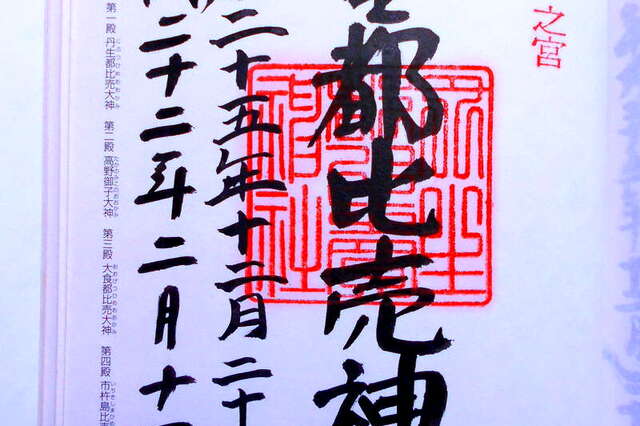 之宮
都比売神
丹生都比売神社
二十五年十二月二十
二十二年二月十
第一殿 丹生都比売大神 第二殿 高野御子大神 第三殿 大食都比売大神 第四殿 市杵島比